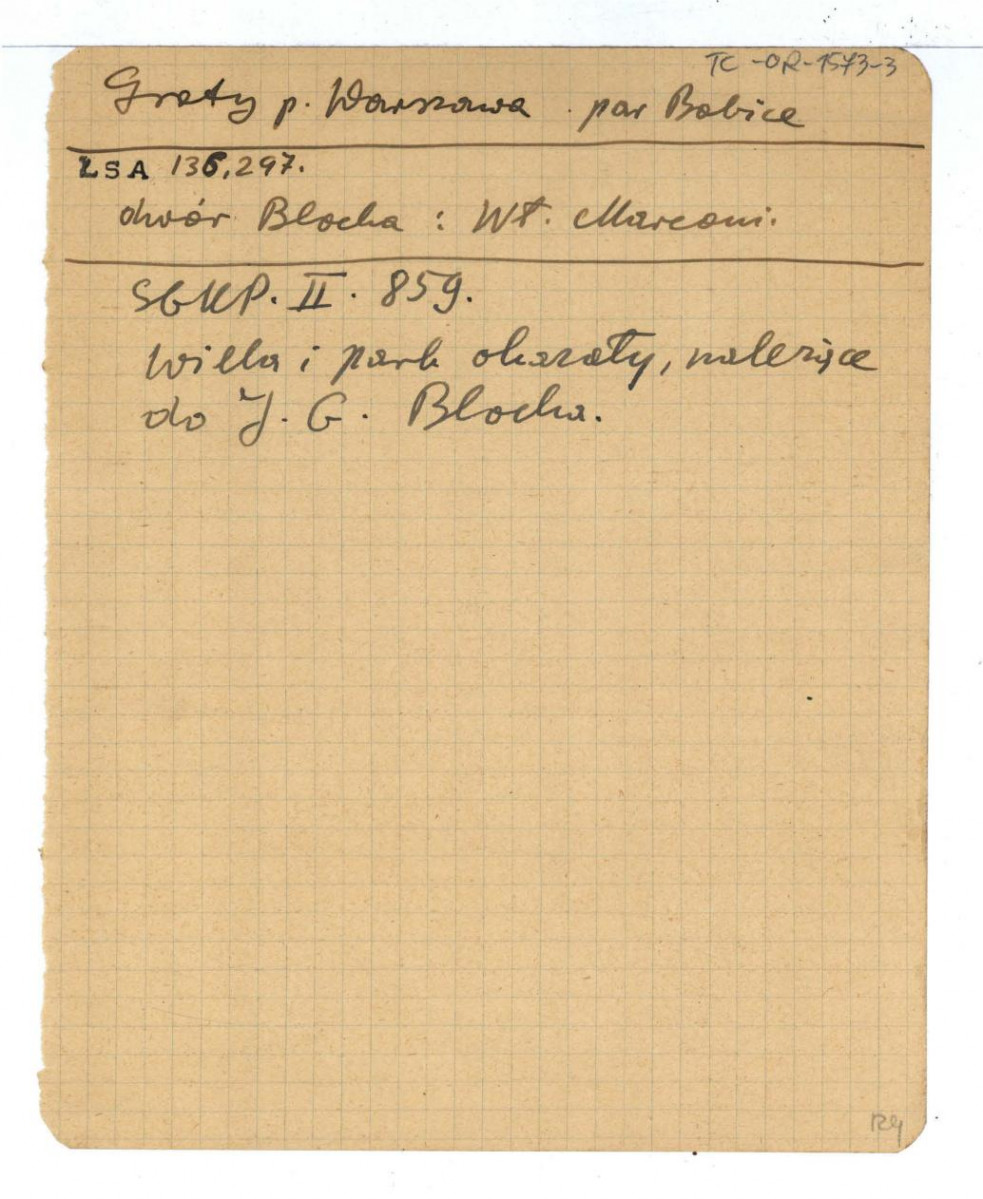 TC-OR-1573-3
Groty p. Warszawa . par Babice
ŁSA 136,297.
dwór Blocha : Wł. Marconi.
SGKP. II. 859.
willa i park okazały, należące
do J. G. Blocha.